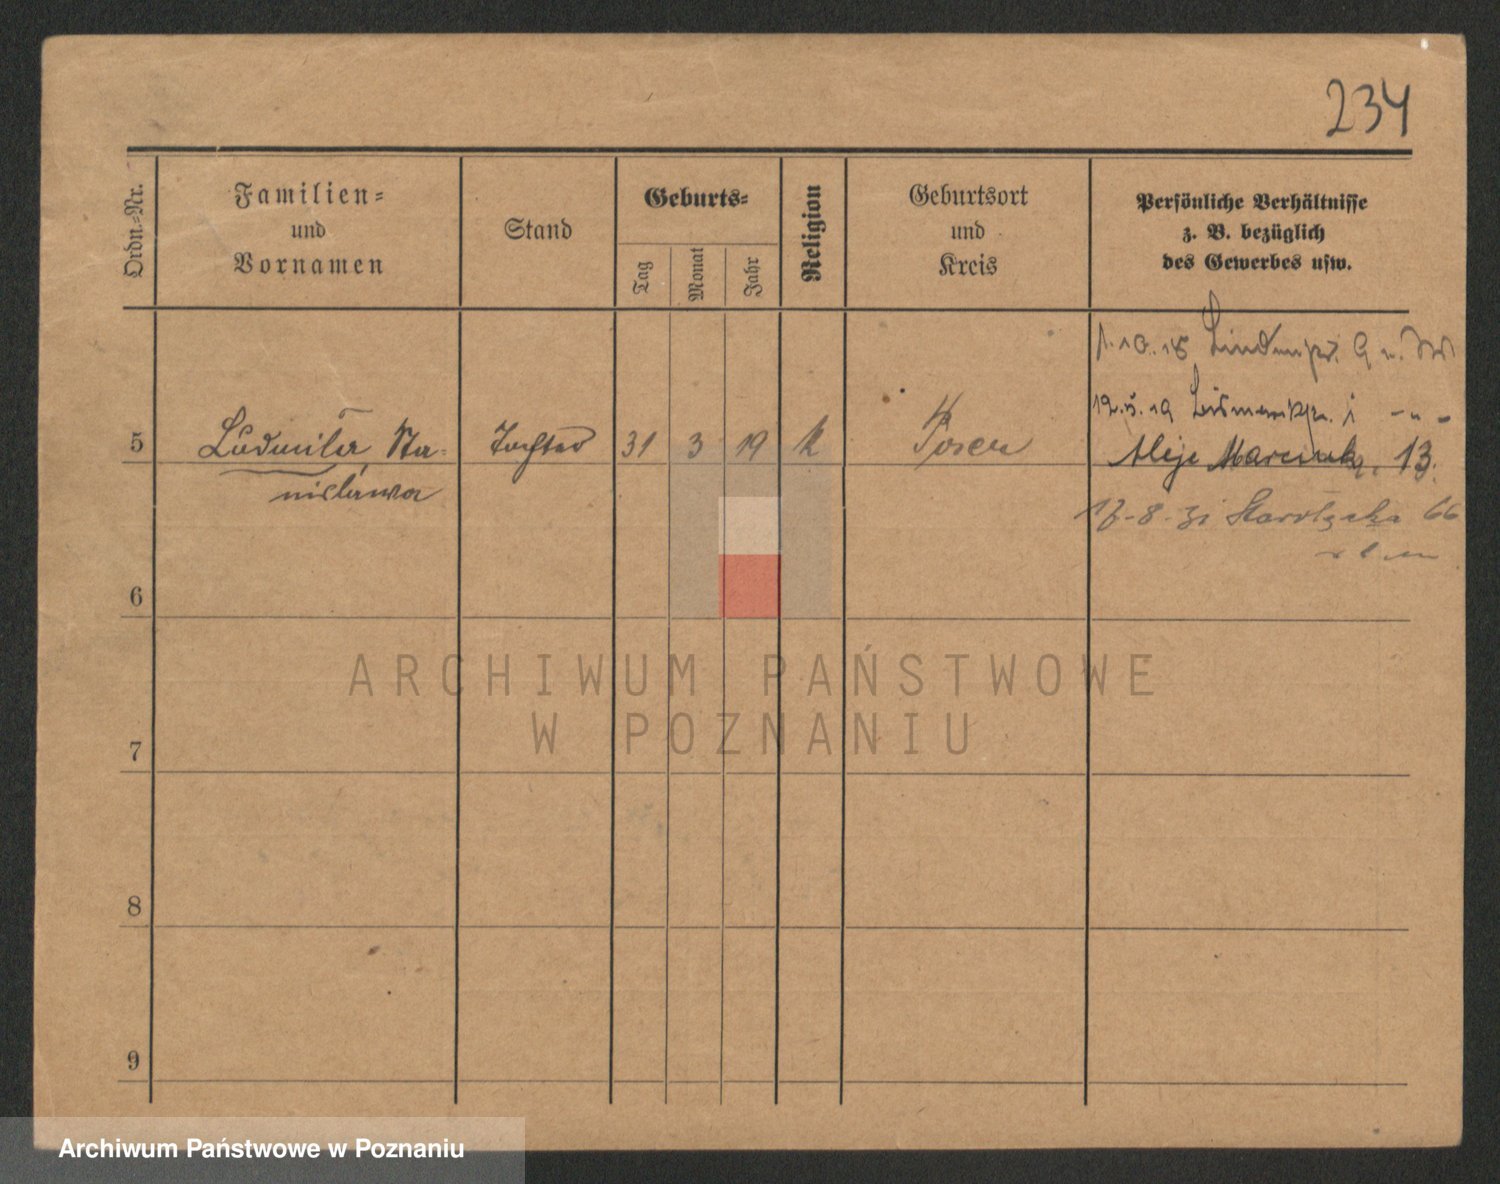 234
Ordn.-Nr.
Familien-
und
Vornamen
Stand
Geburts-
Tag
Monat
Jahr
Religion
Geburtsort
und
Kreis
Persönliche Verhältnisse
z. B. bezüglich
des Gewerbes usw.
1.10.18
12.5.19 Bismarckstr. 1 - " -
5 Ludmila Sta- Tochter 31 3 19 k Posen Aleje Marcink. 13.
nisława
17-8-31 Starołęcka 66
6
7
8
9
ARCHIWUM PAŃSTWOWE
W POZNANIU
Archiwum Państwowe w Poznaniu